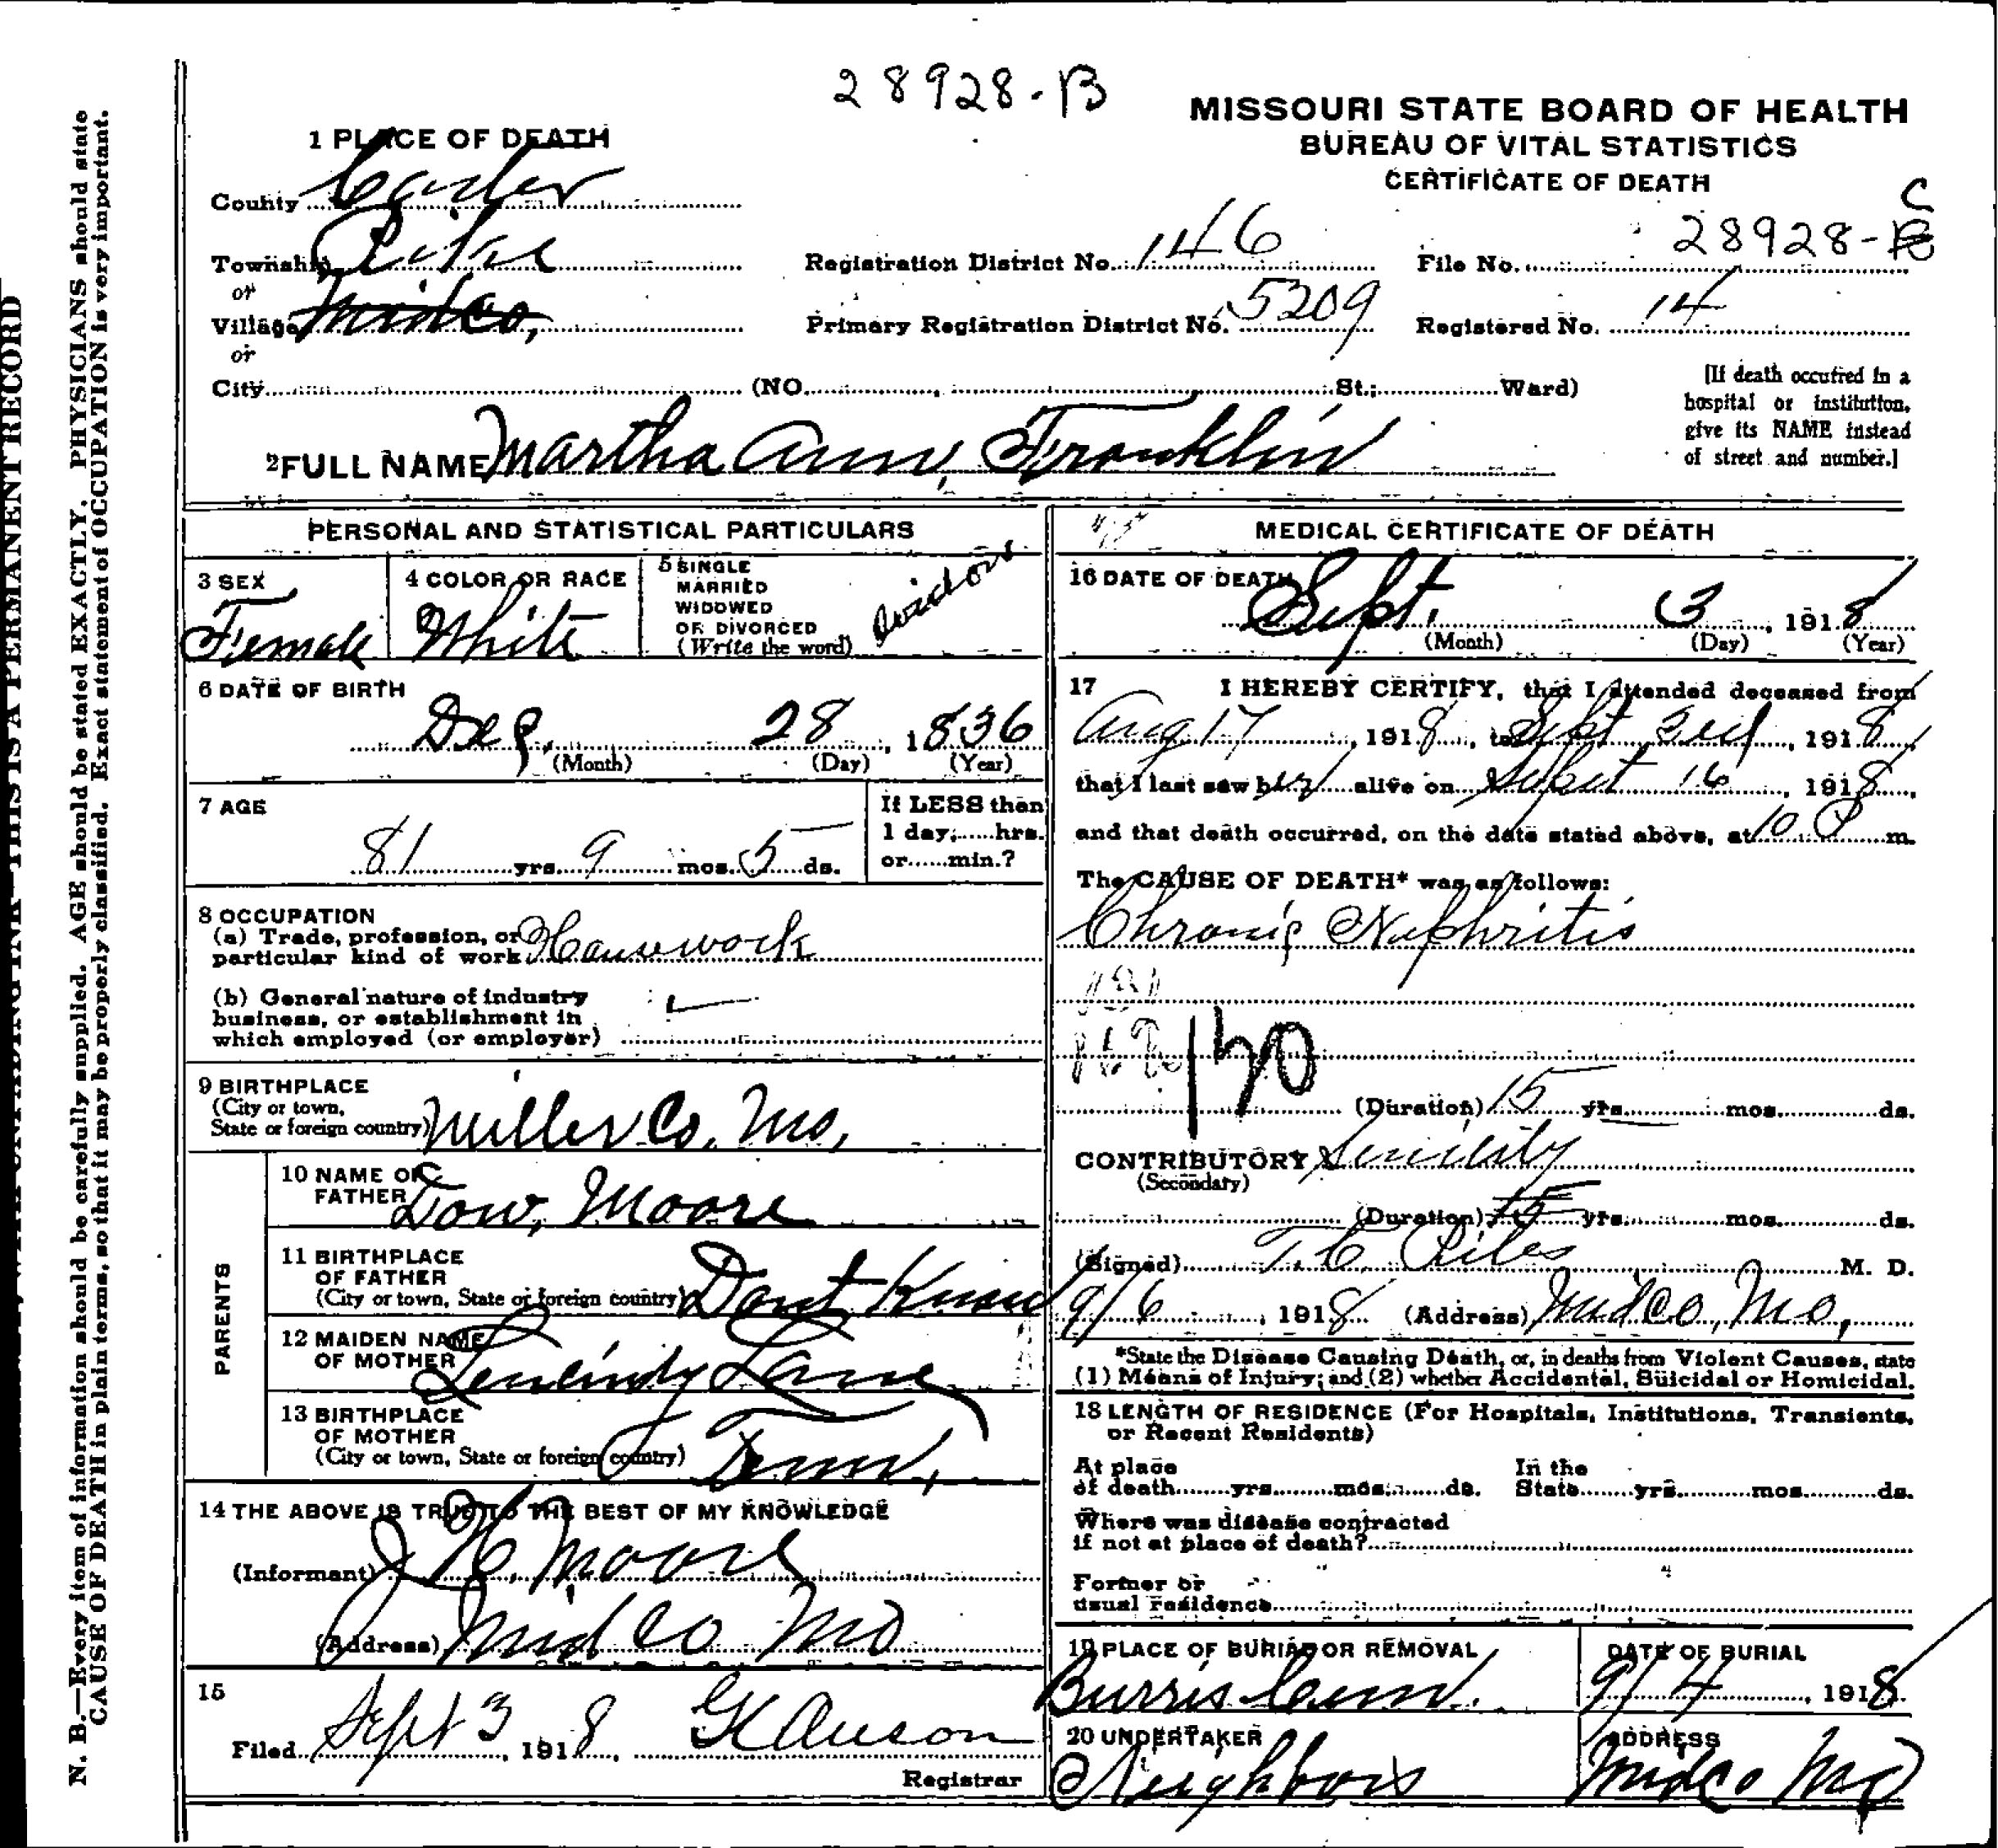 28928-B
MISSOURI STATE BOARD OF HEALTH
BUREAU OF VITAL STATISTICS
CERTIFICATE OF DEATH
1 PLACE OF DEATH
County Carter
Township Pike
or
Village Midco,
or
City (NO. St.; Ward)
Registration District No. 146
Primary Registration District No. 5209
C
File No. 28928-B
Registered No. 14
[If death occurred in a
hospital or institution,
give its NAME instead
of street and number.]
2 FULL NAME Martha Ann, Franklin
PERSONAL AND STATISTICAL PARTICULARS
3 SEX
Female
4 COLOR OR RACE
White
5 SINGLE
MARRIED
WIDOWED
OR DIVORCED
(Write the word)
Widow
6 DATE OF BIRTH
Dec, 28, 1836
(Month) (Day) (Year)
7 AGE
81 yrs. 9 mos. 5 ds.
If LESS than
1 day, hrs.
or min.?
8 OCCUPATION
(a) Trade, profession, or
particular kind of work Housework
(b) General nature of industry
business, or establishment in
which employed (or employer)
9 BIRTHPLACE
(City or town,
State or foreign country) Miller Co. Mo,
PARENTS
10 NAME OF
FATHER Dow, Moore
11 BIRTHPLACE
OF FATHER
(City or town, State or foreign country) Dont Know
12 MAIDEN NAME
OF MOTHER Lane
13 BIRTHPLACE
OF MOTHER
(City or town, State or foreign country) Tenn,
14 THE ABOVE IS TRUE TO THE BEST OF MY KNOWLEDGE
(Informant) J H. Moore
(Address) Midco Mo
15
Filed Sept 3, 1918,
Registrar
MEDICAL CERTIFICATE OF DEATH
16 DATE OF DEATH
Sept. 3, 1918
(Month) (Day) (Year)
17 I HEREBY CERTIFY, that I attended deceased from
Aug 17, 1918, to Sept 3rd, 1918,
that I last saw her alive on Sept 16, 1918,
and that death occurred, on the date stated above, at 10 P m.
The CAUSE OF DEATH* was as follows:
Chronic Nephritis
120
(Duration) 15 yrs. mos. ds.
CONTRIBUTORY Senility
(Secondary)
(Duration) 75 yrs. mos. ds.
(Signed) T. C. M. D.
9/6, 1918 (Address) Midco, Mo,
*State the Disease Causing Death, or, in deaths from Violent Causes, state
(1) Means of Injury; and (2) whether Accidental, Suicidal or Homicidal.
18 LENGTH OF RESIDENCE (For Hospitals, Institutions, Transients,
or Recent Residents)
At place
of death yrs. mos. ds.
In the
State yrs. mos. ds.
Where was disease contracted
if not at place of death?
Former or
usual residence
19 PLACE OF BURIAL OR REMOVAL
Burris Cem.
DATE OF BURIAL
9/4, 1918
20 UNDERTAKER
Neighbors
ADDRESS
Midco Mo
N. B.—Every item of information should be carefully supplied. AGE should be stated EXACTLY. PHYSICIANS should state
CAUSE OF DEATH in plain terms, so that it may be properly classified. Exact statement of OCCUPATION is very important.
THIS IS A PERMANENT RECORD